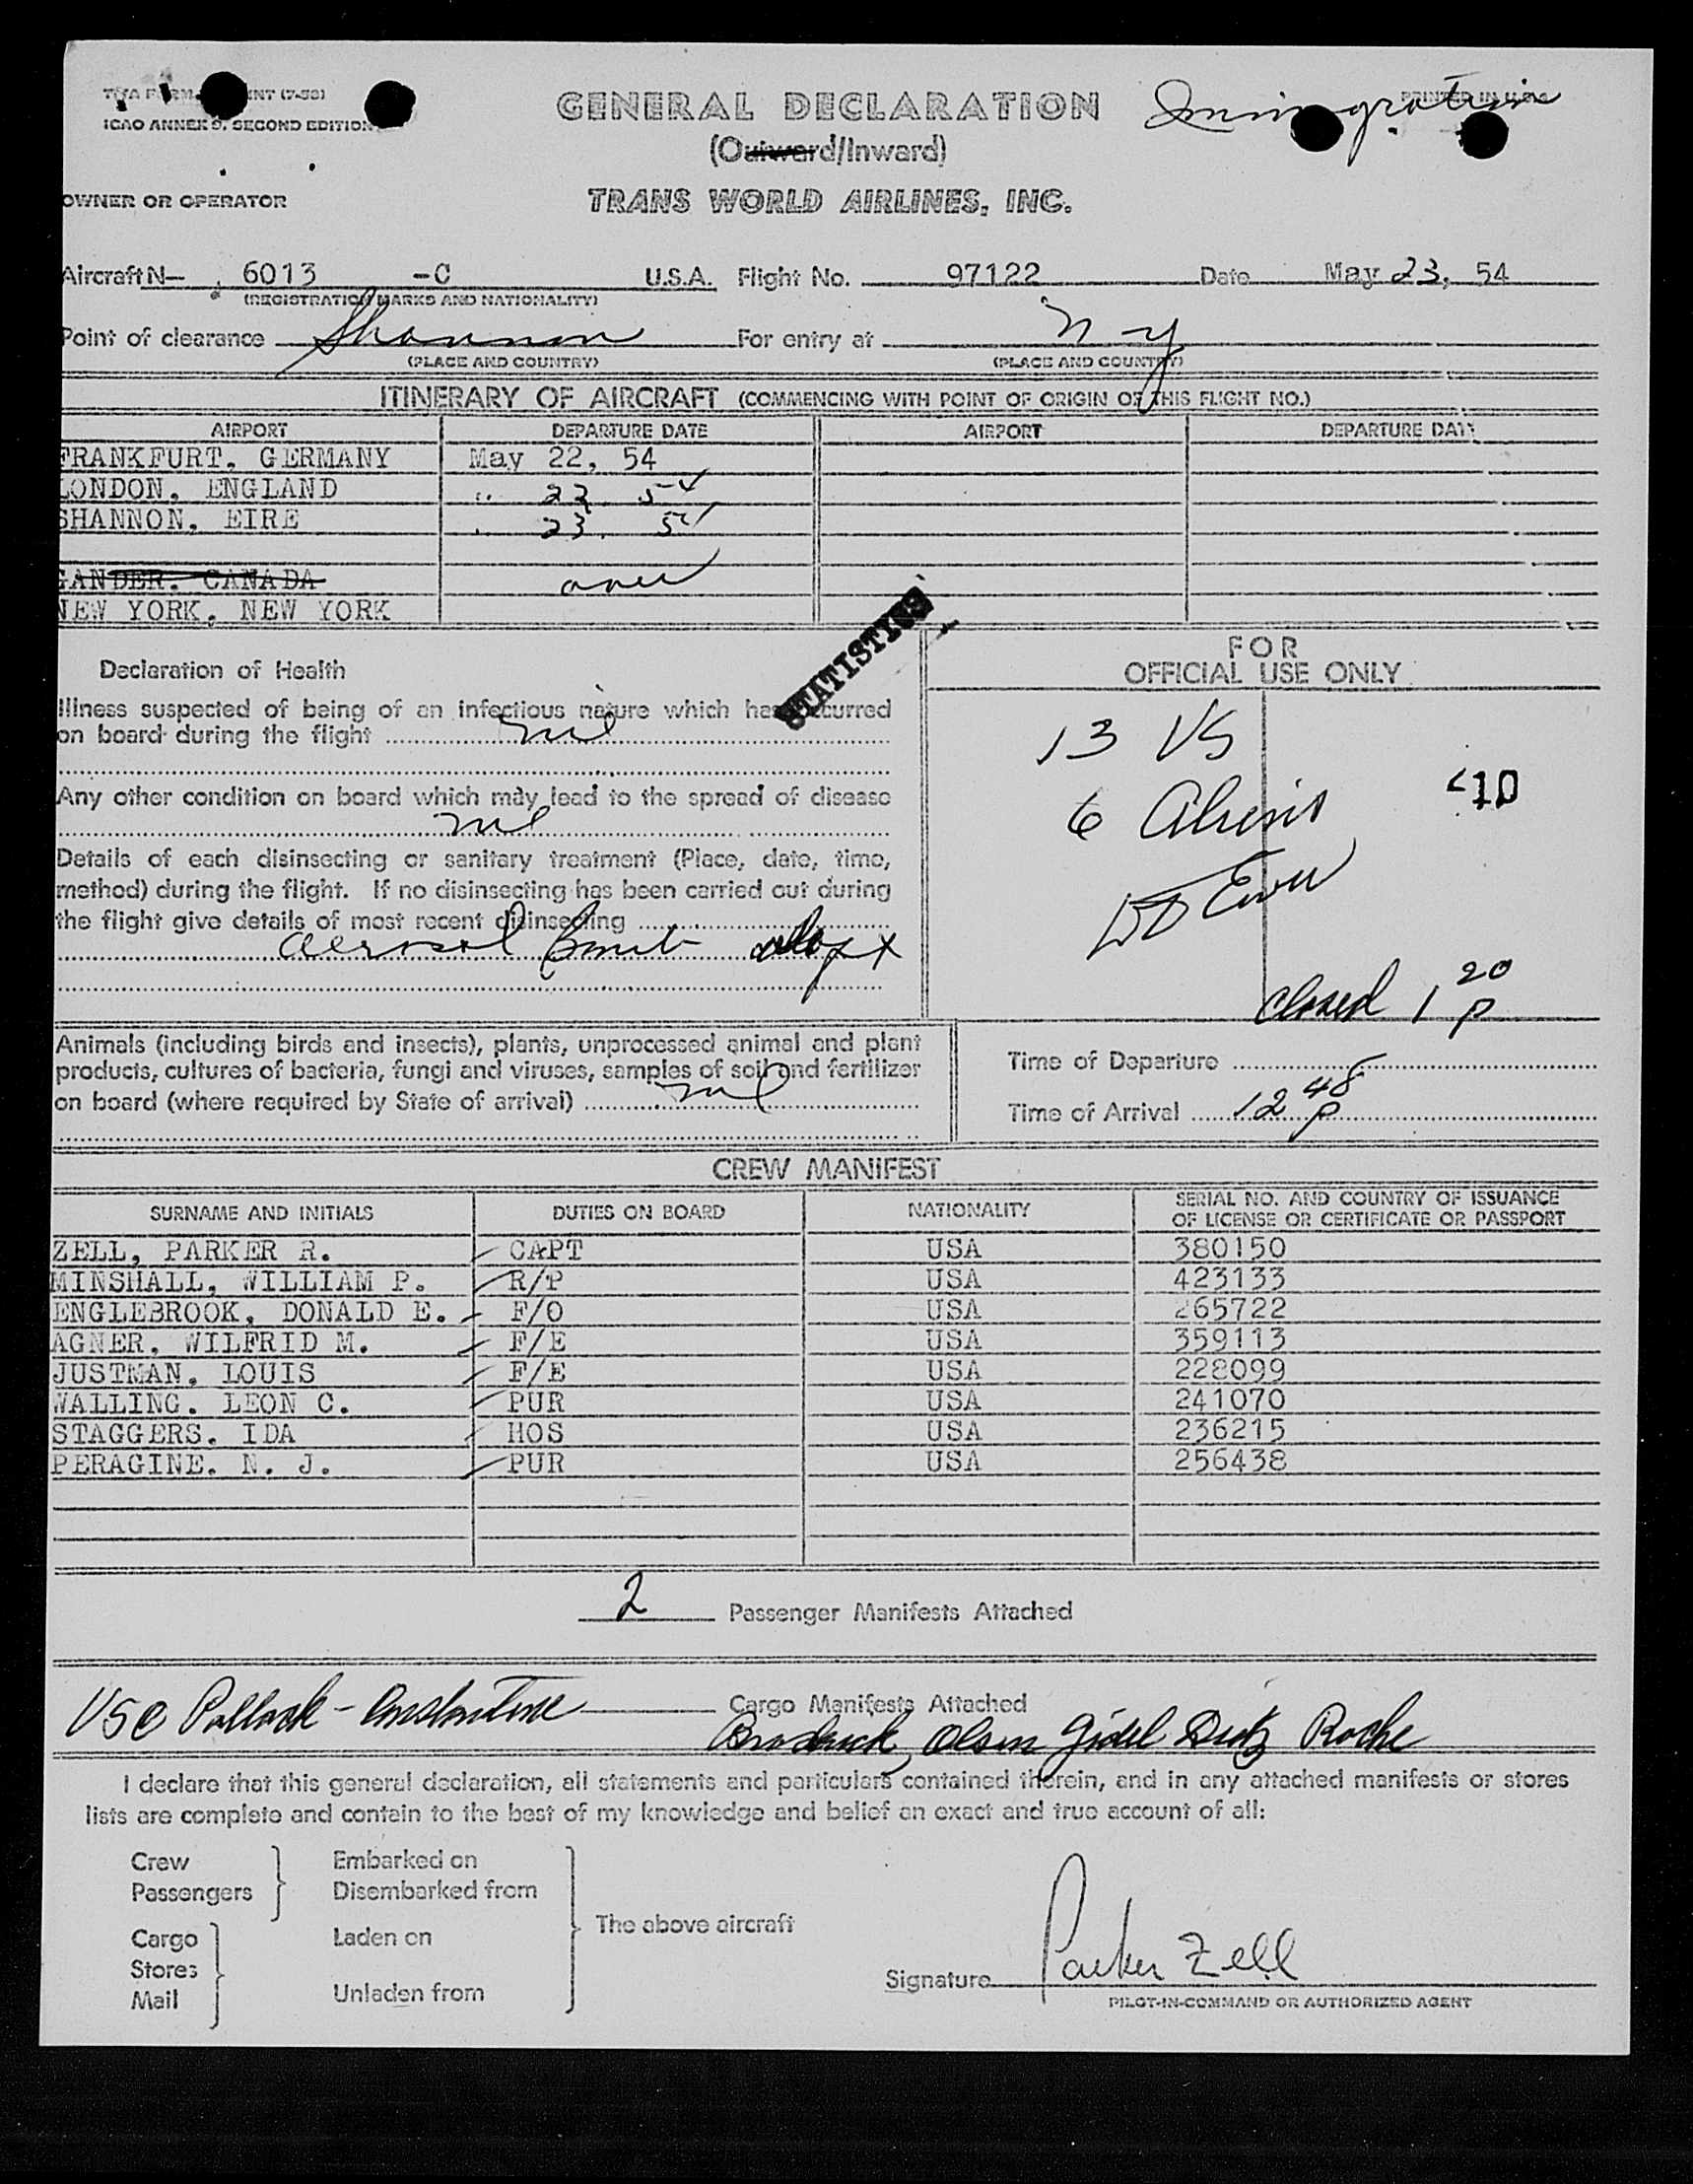 ICAO ANNEX 9, SECOND EDITION
GENERAL DECLARATION
Immigration
PRINTED IN U.S.A.
(Outward/Inward)
OWNER OR OPERATOR
TRANS WORLD AIRLINES, INC.
Aircraft N— 6013 -C U.S.A. Flight No. 97122 Date May 23, 54
(REGISTRATION MARKS AND NATIONALITY)
Point of clearance Shannon For entry at N Y
(PLACE AND COUNTRY) (PLACE AND COUNTRY)
ITINERARY OF AIRCRAFT (COMMENCING WITH POINT OF ORIGIN OF THIS FLIGHT NO.)
AIRPORT DEPARTURE DATE AIRPORT DEPARTURE DATE
FRANKFURT, GERMANY May 22, 54
LONDON, ENGLAND " 22, 54
SHANNON, EIRE " 23, 54
GANDER. CANADA over
NEW YORK, NEW YORK
STATISTICS
FOR
OFFICIAL USE ONLY
Declaration of Health
Illness suspected of being of an infectious nature which has occurred
on board during the flight nil
Any other condition on board which may lead to the spread of disease
nil
Details of each disinsecting or sanitary treatment (Place, date, time,
method) during the flight. If no disinsecting has been carried out during
the flight give details of most recent disinsecting
aerosol bomb
13 US
6 Aliens
closed 1 20 P
Animals (including birds and insects), plants, unprocessed animal and plant
products, cultures of bacteria, fungi and viruses, samples of soil and fertilizer
on board (where required by State of arrival) nil
Time of Departure
Time of Arrival 12 48 P
CREW MANIFEST
SURNAME AND INITIALS DUTIES ON BOARD NATIONALITY SERIAL NO. AND COUNTRY OF ISSUANCE
OF LICENSE OR CERTIFICATE OR PASSPORT
ZELL, PARKER R. CAPT USA 380150
MINSHALL, WILLIAM P. R/P USA 423133
ENGLEBROOK, DONALD E. F/O USA 265722
AGNER, WILFRID M. F/E USA 359113
JUSTMAN, LOUIS F/E USA 228099
WALLING. LEON C. PUR USA 241070
STAGGERS. IDA HOS USA 236215
PERAGINE. N. J. PUR USA 256438
2 Passenger Manifests Attached
Pollack - Constantine Cargo Manifests Attached
Brodrick, Olsen Gidel Dietz Roche
I declare that this general declaration, all statements and particulars contained therein, and in any attached manifests or stores
lists are complete and contain to the best of my knowledge and belief an exact and true account of all:
Crew Embarked on
Passengers Disembarked from
The above aircraft
Cargo Laden on
Stores
Mail Unladen from
Signature Parker Zell
PILOT-IN-COMMAND OR AUTHORIZED AGENT